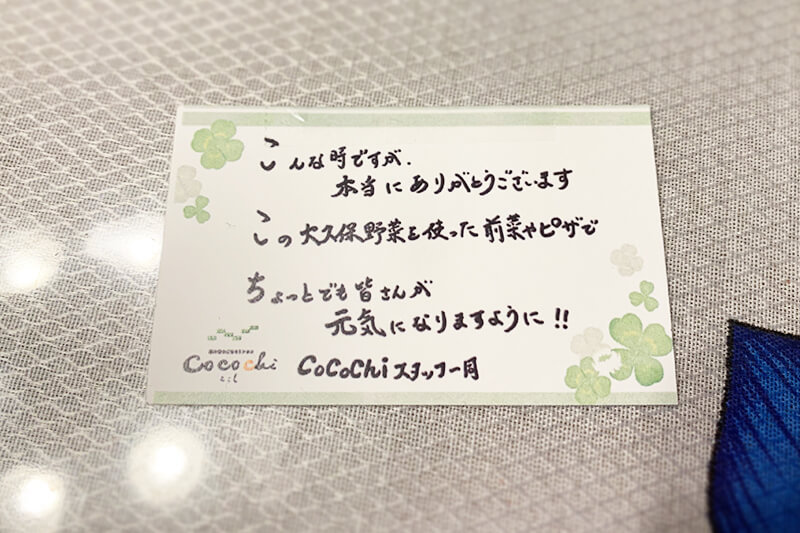 こんな時ですが、
本当にありがとうございます
この大久保野菜を使った前菜やピザで
ちょっとでも皆さんが
元気になりますように!!
Cocochi
CoCoChiスタッフ一同